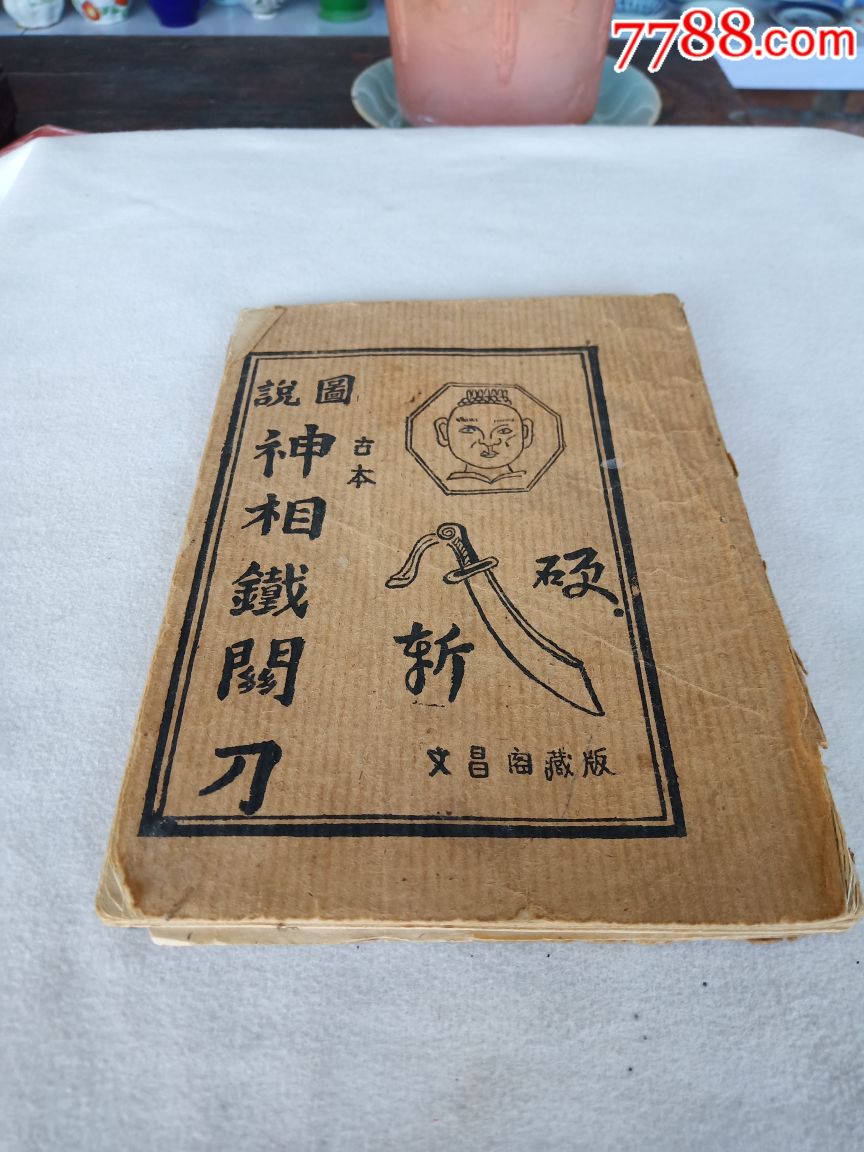 7788.com
圖說
古本
神相鐵關刀
硬
斬
文昌阁藏版